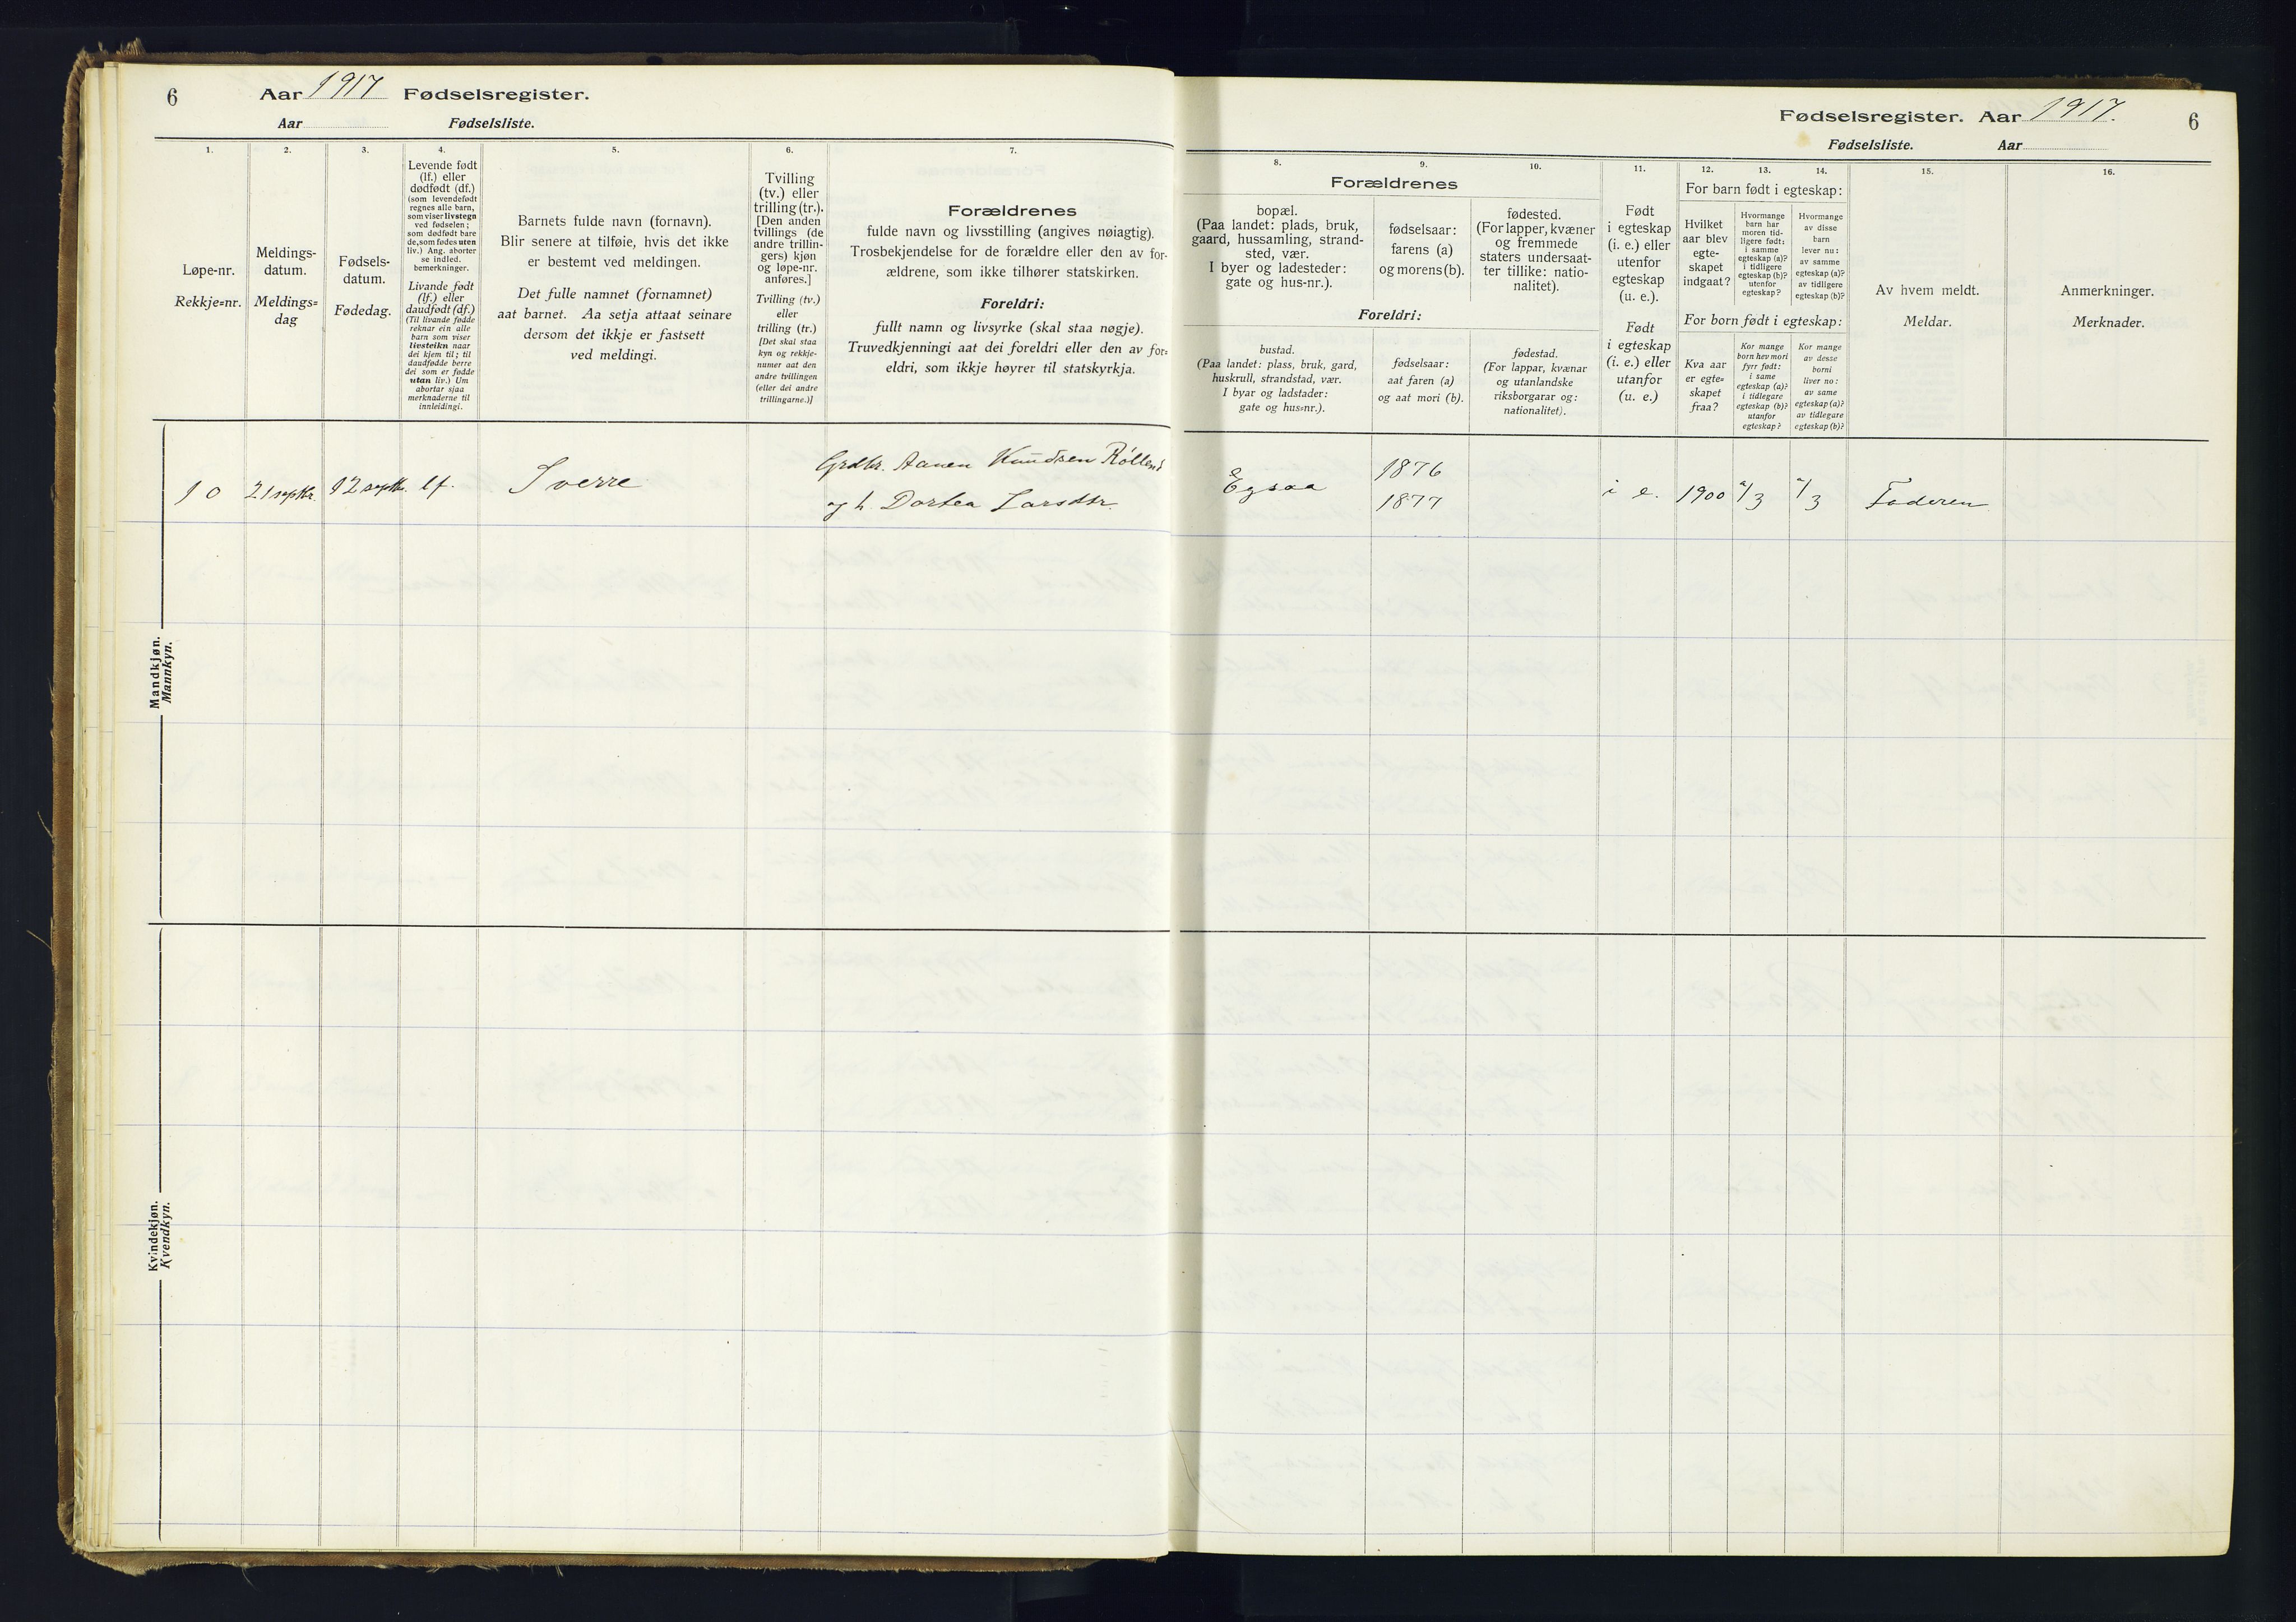 6
Aar 1917 Fødselsregister.
Aar Fødselsliste.
1.
Løpe-nr.
Rekkje=nr.
2.
Meldings-
datum.
Meldings=
dag
3.
Fødsels-
datum.
Fødedag.
4.
Levende født
(lf.) eller
dødfødt (df.)
(som levendefødt
regnes alle barn,
som viser livstegn
ved fødselen;
som dødfødt bare
de, som fødes uten
liv.) Ang. aborter
se indled.
bemerkninger.
Livande født
(lf.) eller
daudfødt (df.)
(Til livande fødde
reknar ein alle
barn som viser
livsteikn naar
dei kjem til; til
daudfødde berre
dei som er fødde
utan liv.) Um
abortar sjaa
merknaderne til
innleidingi.
5.
Barnets fulde navn (fornavn).
Blir senere at tilføie, hvis det ikke
er bestemt ved meldingen.
Det fulle namnet (fornamnet)
aat barnet. Aa setja attaat seinare
dersom det ikkje er fastsett
ved meldingi.
6.
Tvilling
(tv.) eller
trilling (tr.).
[Den anden
tvillings (de
andre trillin-
gers) kjøn
og løpe-nr.
anføres.]
Tvilling (tv.)
eller
trilling (tr.)
[Det skal staa
kyn og rekkje-
numer aat den
andre tvillingen
(eller dei andre
trillingarne.)]
7.
Forældrenes
fulde navn og livsstilling (angives nøiagtig).
Trosbekjendelse for de forældre eller den av for-
ældrene, som ikke tilhører statskirken.
Foreldri:
fullt namn og livsyrke (skal staa nøgje).
Truvedkjenningi aat dei foreldri eller den av for=
eldri, som ikkje høyrer til statskyrkja.
Mandkjøn.
Mannkyn.
10 21 septbr. 12 septbr. lf. Sverre
Grdbr. Aanen Knudsen Rölland
og h. Dortea Larsdtr.
Kvindekjøn.
Kvendkyn.
Fødselsregister. Aar 1917.
6
Fødselsliste. Aar
8.
9.
10.
Forældrenes
bopæl.
(Paa landet: plads, bruk,
gaard, hussamling, strand-
sted, vær.
I byer og ladesteder:
gate og hus-nr.).
fødselsaar:
farens (a)
og morens (b).
fødested.
(For lapper, kvæner
og fremmede
staters undersaat-
ter tillike: natio-
nalitet).
Foreldri:
bustad.
(Paa landet: plass, bruk, gard,
huskrull, strandstad, vær.
I byar og ladstader:
gate og hus=nr.).
fødselsaar:
aat faren (a)
og aat mori (b).
fødestad.
(For lappar, kvænar
og utanlandske
riksborgarar og:
nationalitet).
11.
Født
i egteskap
(i. e.) eller
utenfor
egteskap
(u. e.).
Født
i egteskap
(i. e.) eller
utanfor
(u. e.)
12.
13.
14.
For barn født i egteskap:
Hvilket
aar blev
egte-
skapet
indgaat?
Hvormange
barn har
moren tid-
ligere født:
i samme
egteskap (a)?
i tidligere
egteskap (b)?
utenfor
egteskap?
Hvormange
av disse
barn
lever nu:
av samme
egteskap (a)?
av tidligere
egteskap (b)?
For born født i egteskap:
Kva aar
er egte=
skapet
fraa?
Kor mange
born hev mori
fyrr født:
i same
egteskap (a)?
i tidlegare
egteskap (b)?
utanfor
egteskap?
Kor mange
av desse
borni
liver no:
av same
egteskap (a)?
av tidlegare
egteskap (b)?
15.
Av hvem meldt.
Meldar.
16.
Anmerkninger.
Merknader.
Egsaa
1876
1877
i e. 1900 a/3 a/3 Faderen